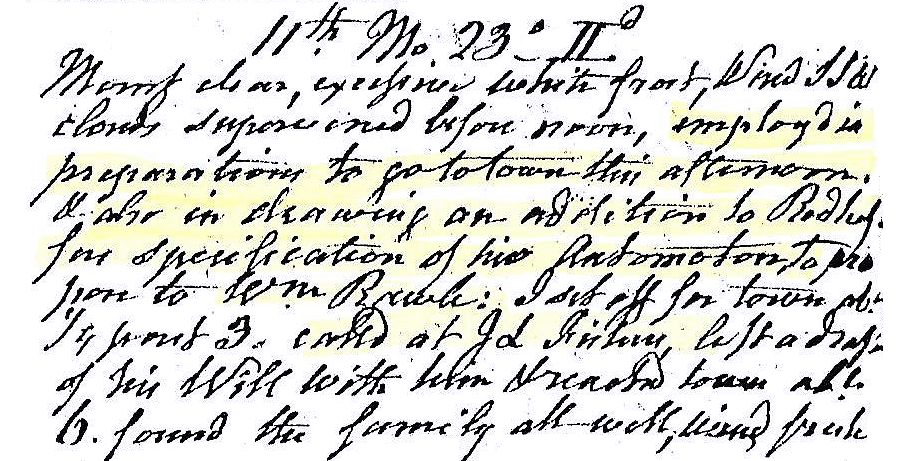 11th Mo 23d II d
Morng clear, excessive white frost, Wind SSW
clouds supervened before noon, employd in
preparations to go to town this afternoon.
& also in drawing an addition to Redhef-
fers specification of his Automoton, to pro
pose to Wm Rawle: I set off for town abt
1/4 past 3. calld at Jd left a draft
of his Will with him & reachd town abt.
6. found the family all well, wind fresh